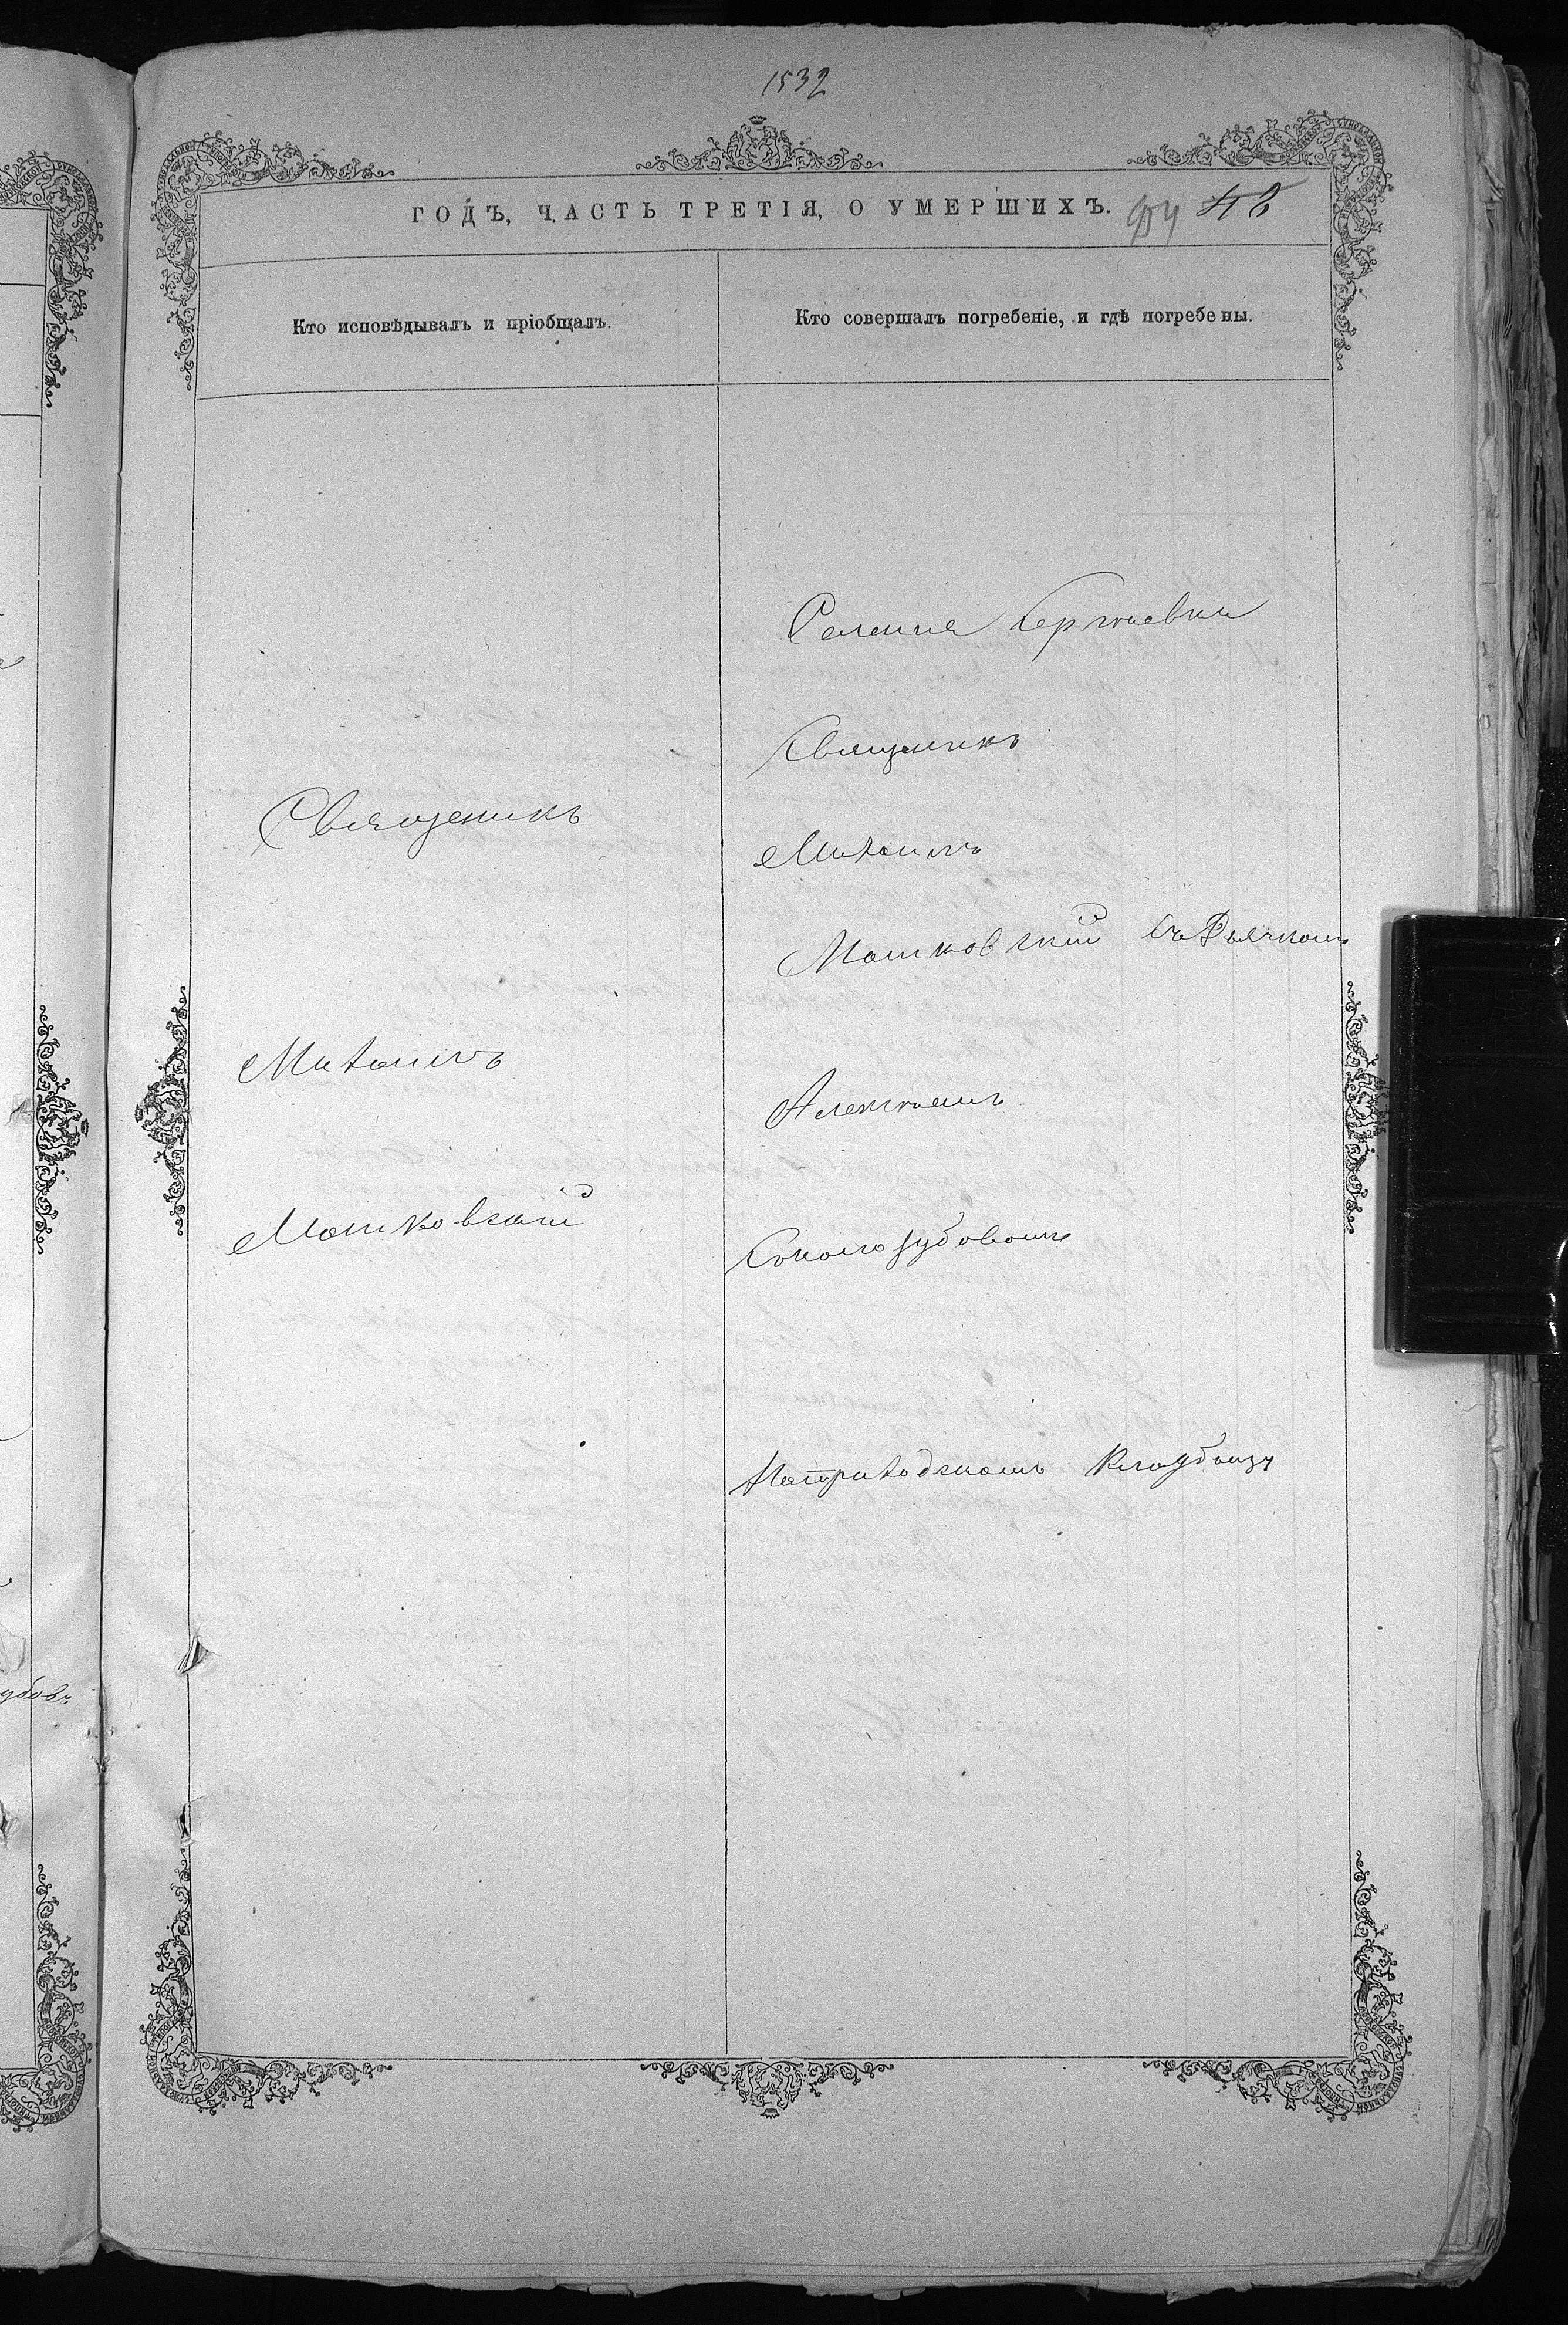 1532
ГОДЪ, ЧАСТЬ ТРЕТІЯ, О УМЕРШИХЪ. 954
Кто исповѣдывалъ и пріобщалъ.
Кто совершалъ погребеніе, и гдѣ погребены.
Священикъ
Михаилъ
Машковскій
Селенія Сергѣевки
Священикъ
Михаилъ
Машковскій съ Дьячкомъ
Алексѣемъ
Соколозубовымъ
На приходскомъ кладбищѣ
убовъ